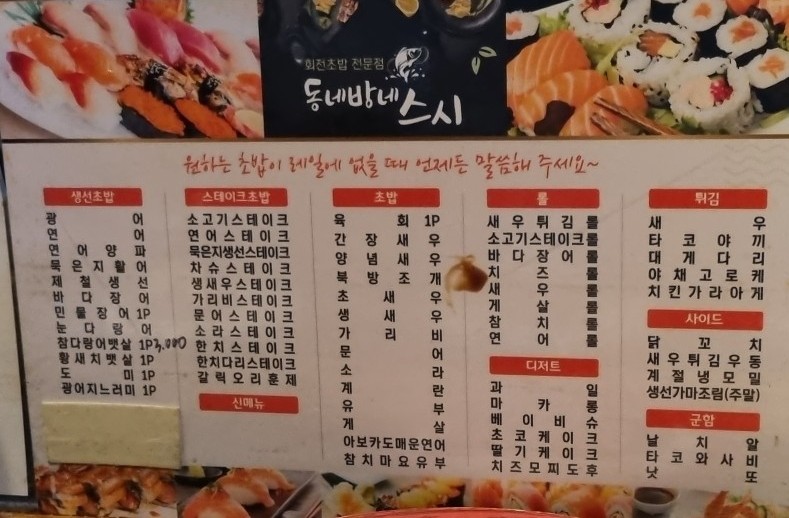 회전초밥 전문점
동네방네스시
원하는 초밥이 레일에 없을 때 언제든 말씀해 주세요~
생선초밥
광어
연어
연어양파
묵은지활어
제철생선
바다장어
민물장어 1P
눈다랑어
참다랑어뱃살 1P 3,000
황새치뱃살 1P
도미 1P
광어지느러미 1P
스테이크초밥
소고기스테이크
연어스테이크
묵은지생선스테이크
차슈스테이크
생새우스테이크
가리비스테이크
문어스테이크
소라스테이크
한치스테이크
한치다리스테이크
갈릭오리훈제
신메뉴
초밥
육회 1P
간장새우
양념새우
북방조개
초새우
생새우
가리비
문어
소라
계란
유부
게살
아보카도매운연어
참치마요유부
롤
새우튀김롤
소고기스테이크롤
바다장어롤
치즈롤
새우롤
게살롤
참치롤
연어롤
디저트
과일
마카롱
베이비슈
초코케이크
딸기케이크
치즈모찌도후
튀김
새우
타코야끼
대게다리
야채고로케
치킨가라아게
사이드
닭꼬치
새우튀김우동
계절냉모밀
생선가마조림(주말)
군함
날치알
타코와사비
낫또